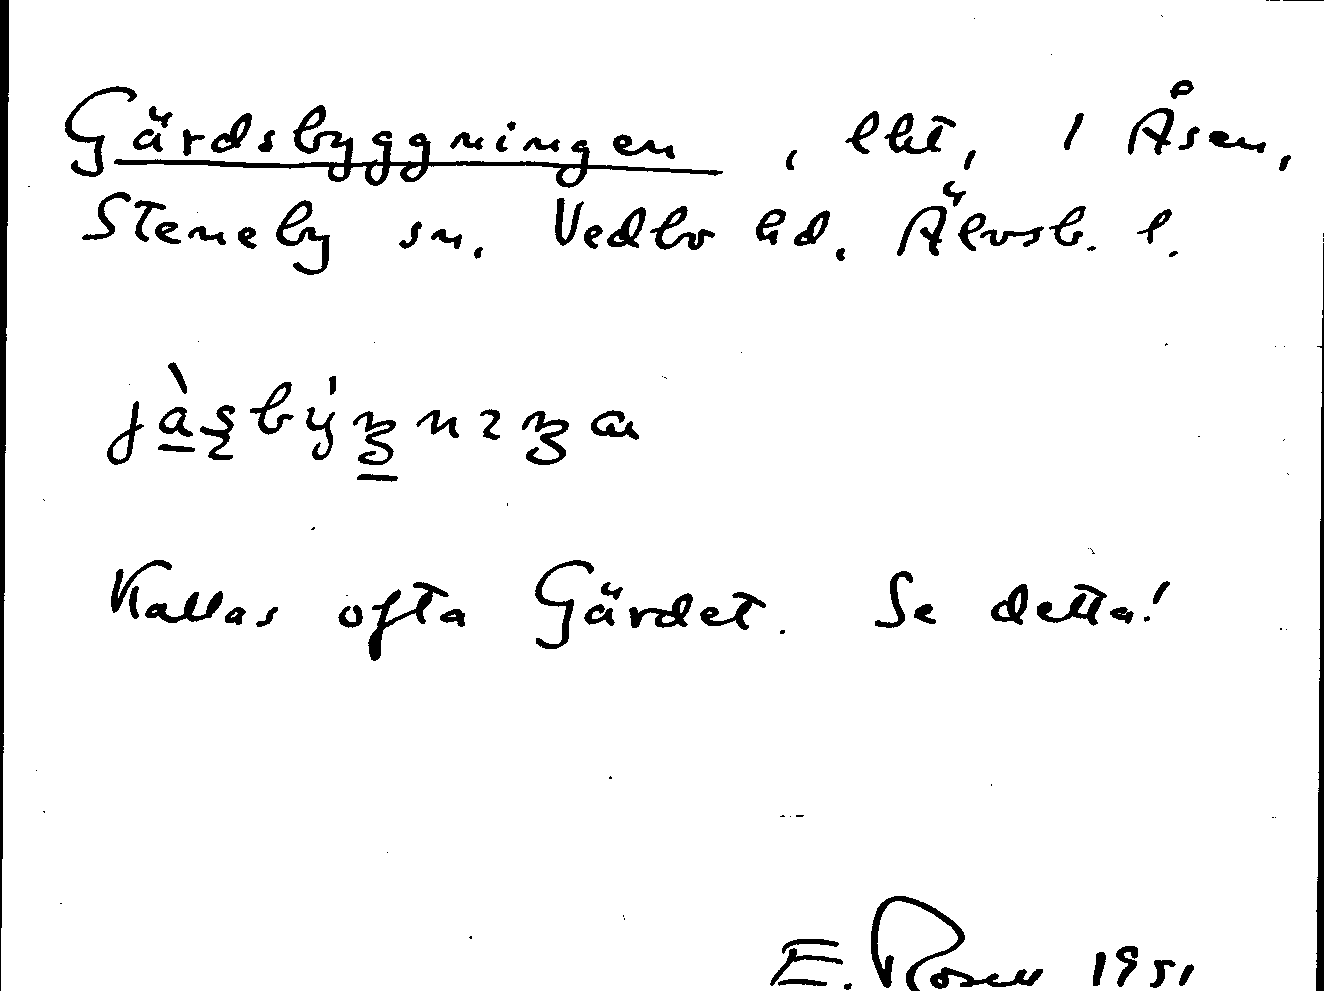 Gärdsbyggningen, lht, 1 Åsen,
Steneby sn. Vedbo hd. Älvsb. l.
Kallas ofta Gärdet. Se detta!
E. Rosell 1951